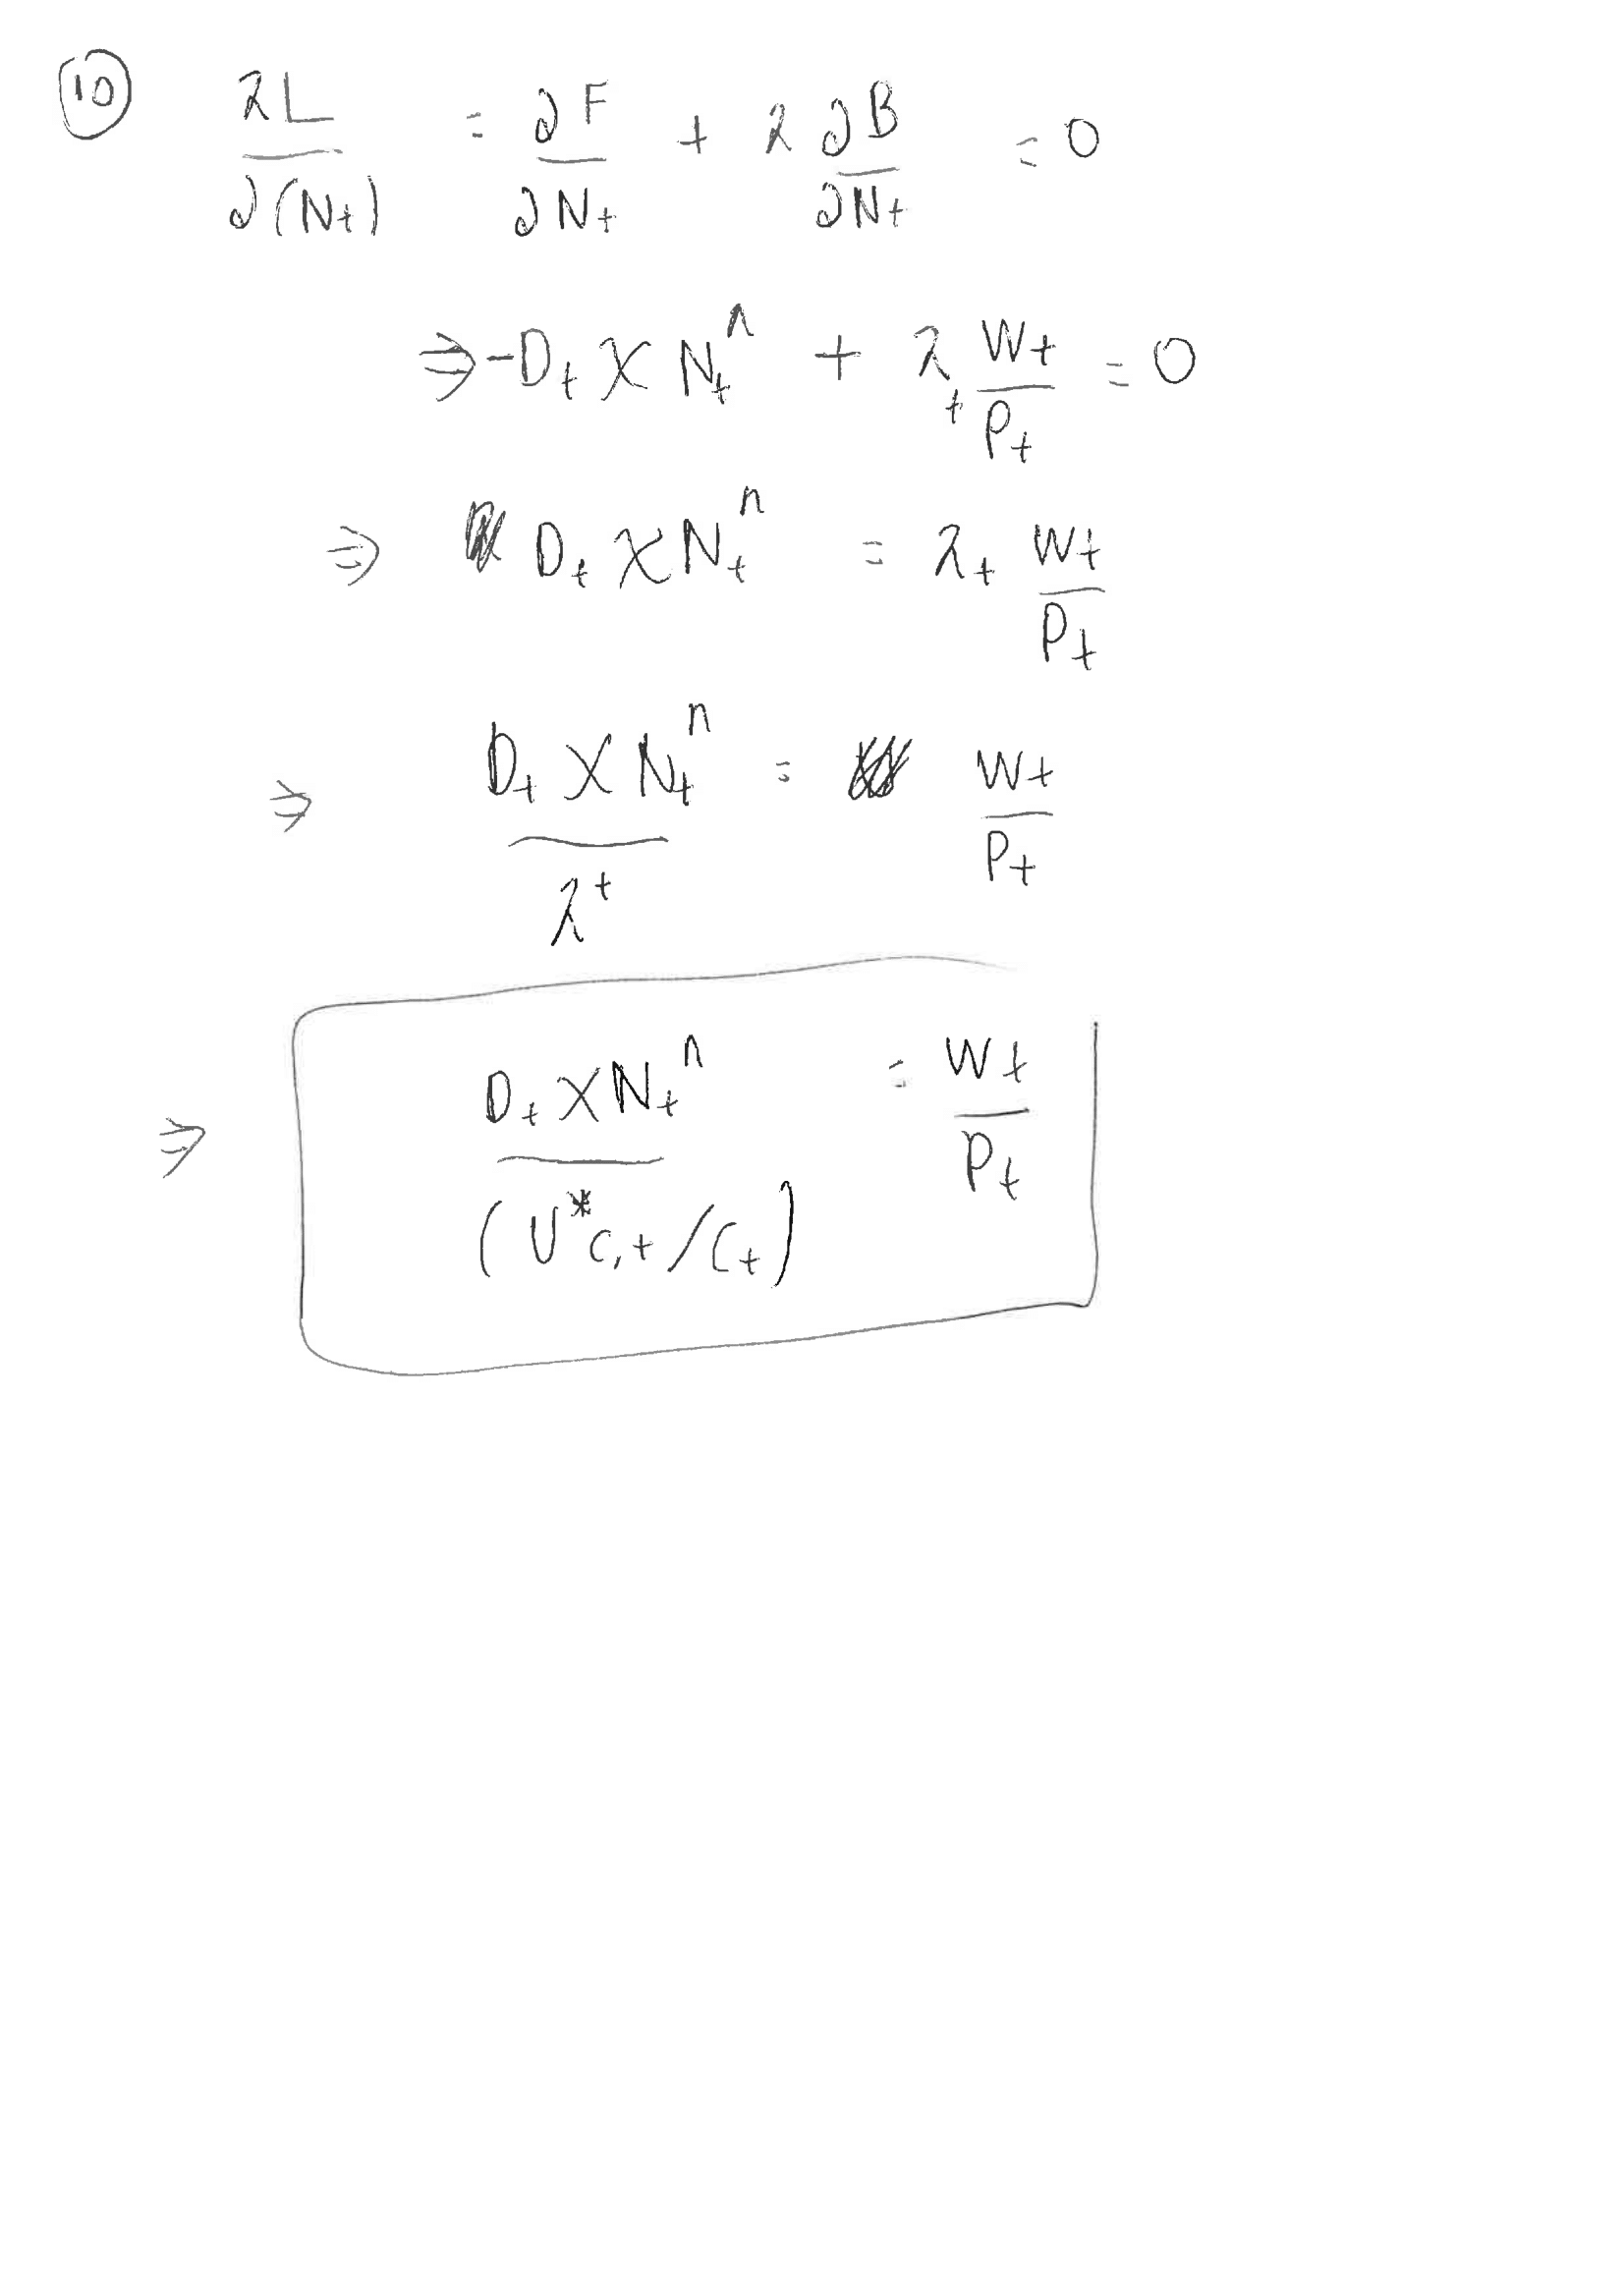 (10) λL/∂(Nt) = ∂F/∂Nt + λ ∂B/∂Nt = 0
⇒ -Dt χ Nt^n + λt Wt/Pt = 0
⇒ Dt χ Nt^n = λt Wt/Pt
⇒ Dt χ Nt^n / λ^t = Wt/Pt
⇒ Dt χ Nt^n / (U*c,t/Ct) = Wt/Pt